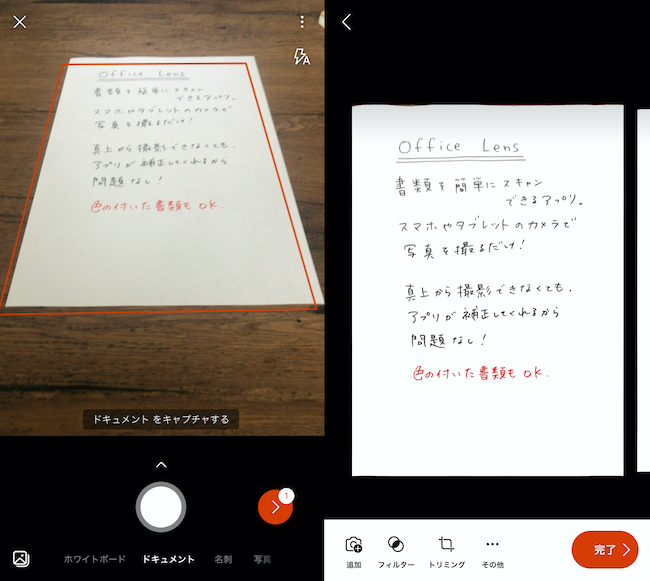 Office Lens
書類を簡単にスキャン
できるアプリ。
スマホやタブレットのカメラで
写真を撮るだけ！
真上から撮影できなくても、
アプリが補正してくれるから
問題なし！
色の付いた書類もOK.
ドキュメント をキャプチャする
1
ホワイトボード
ドキュメント
名刺
写真
Office Lens
書類を簡単にスキャン
できるアプリ。
スマホやタブレットのカメラで
写真を撮るだけ！
真上から撮影できなくても、
アプリが補正してくれるから
問題なし！
色の付いた書類もOK.
追加
フィルター
トリミング
その他
完了